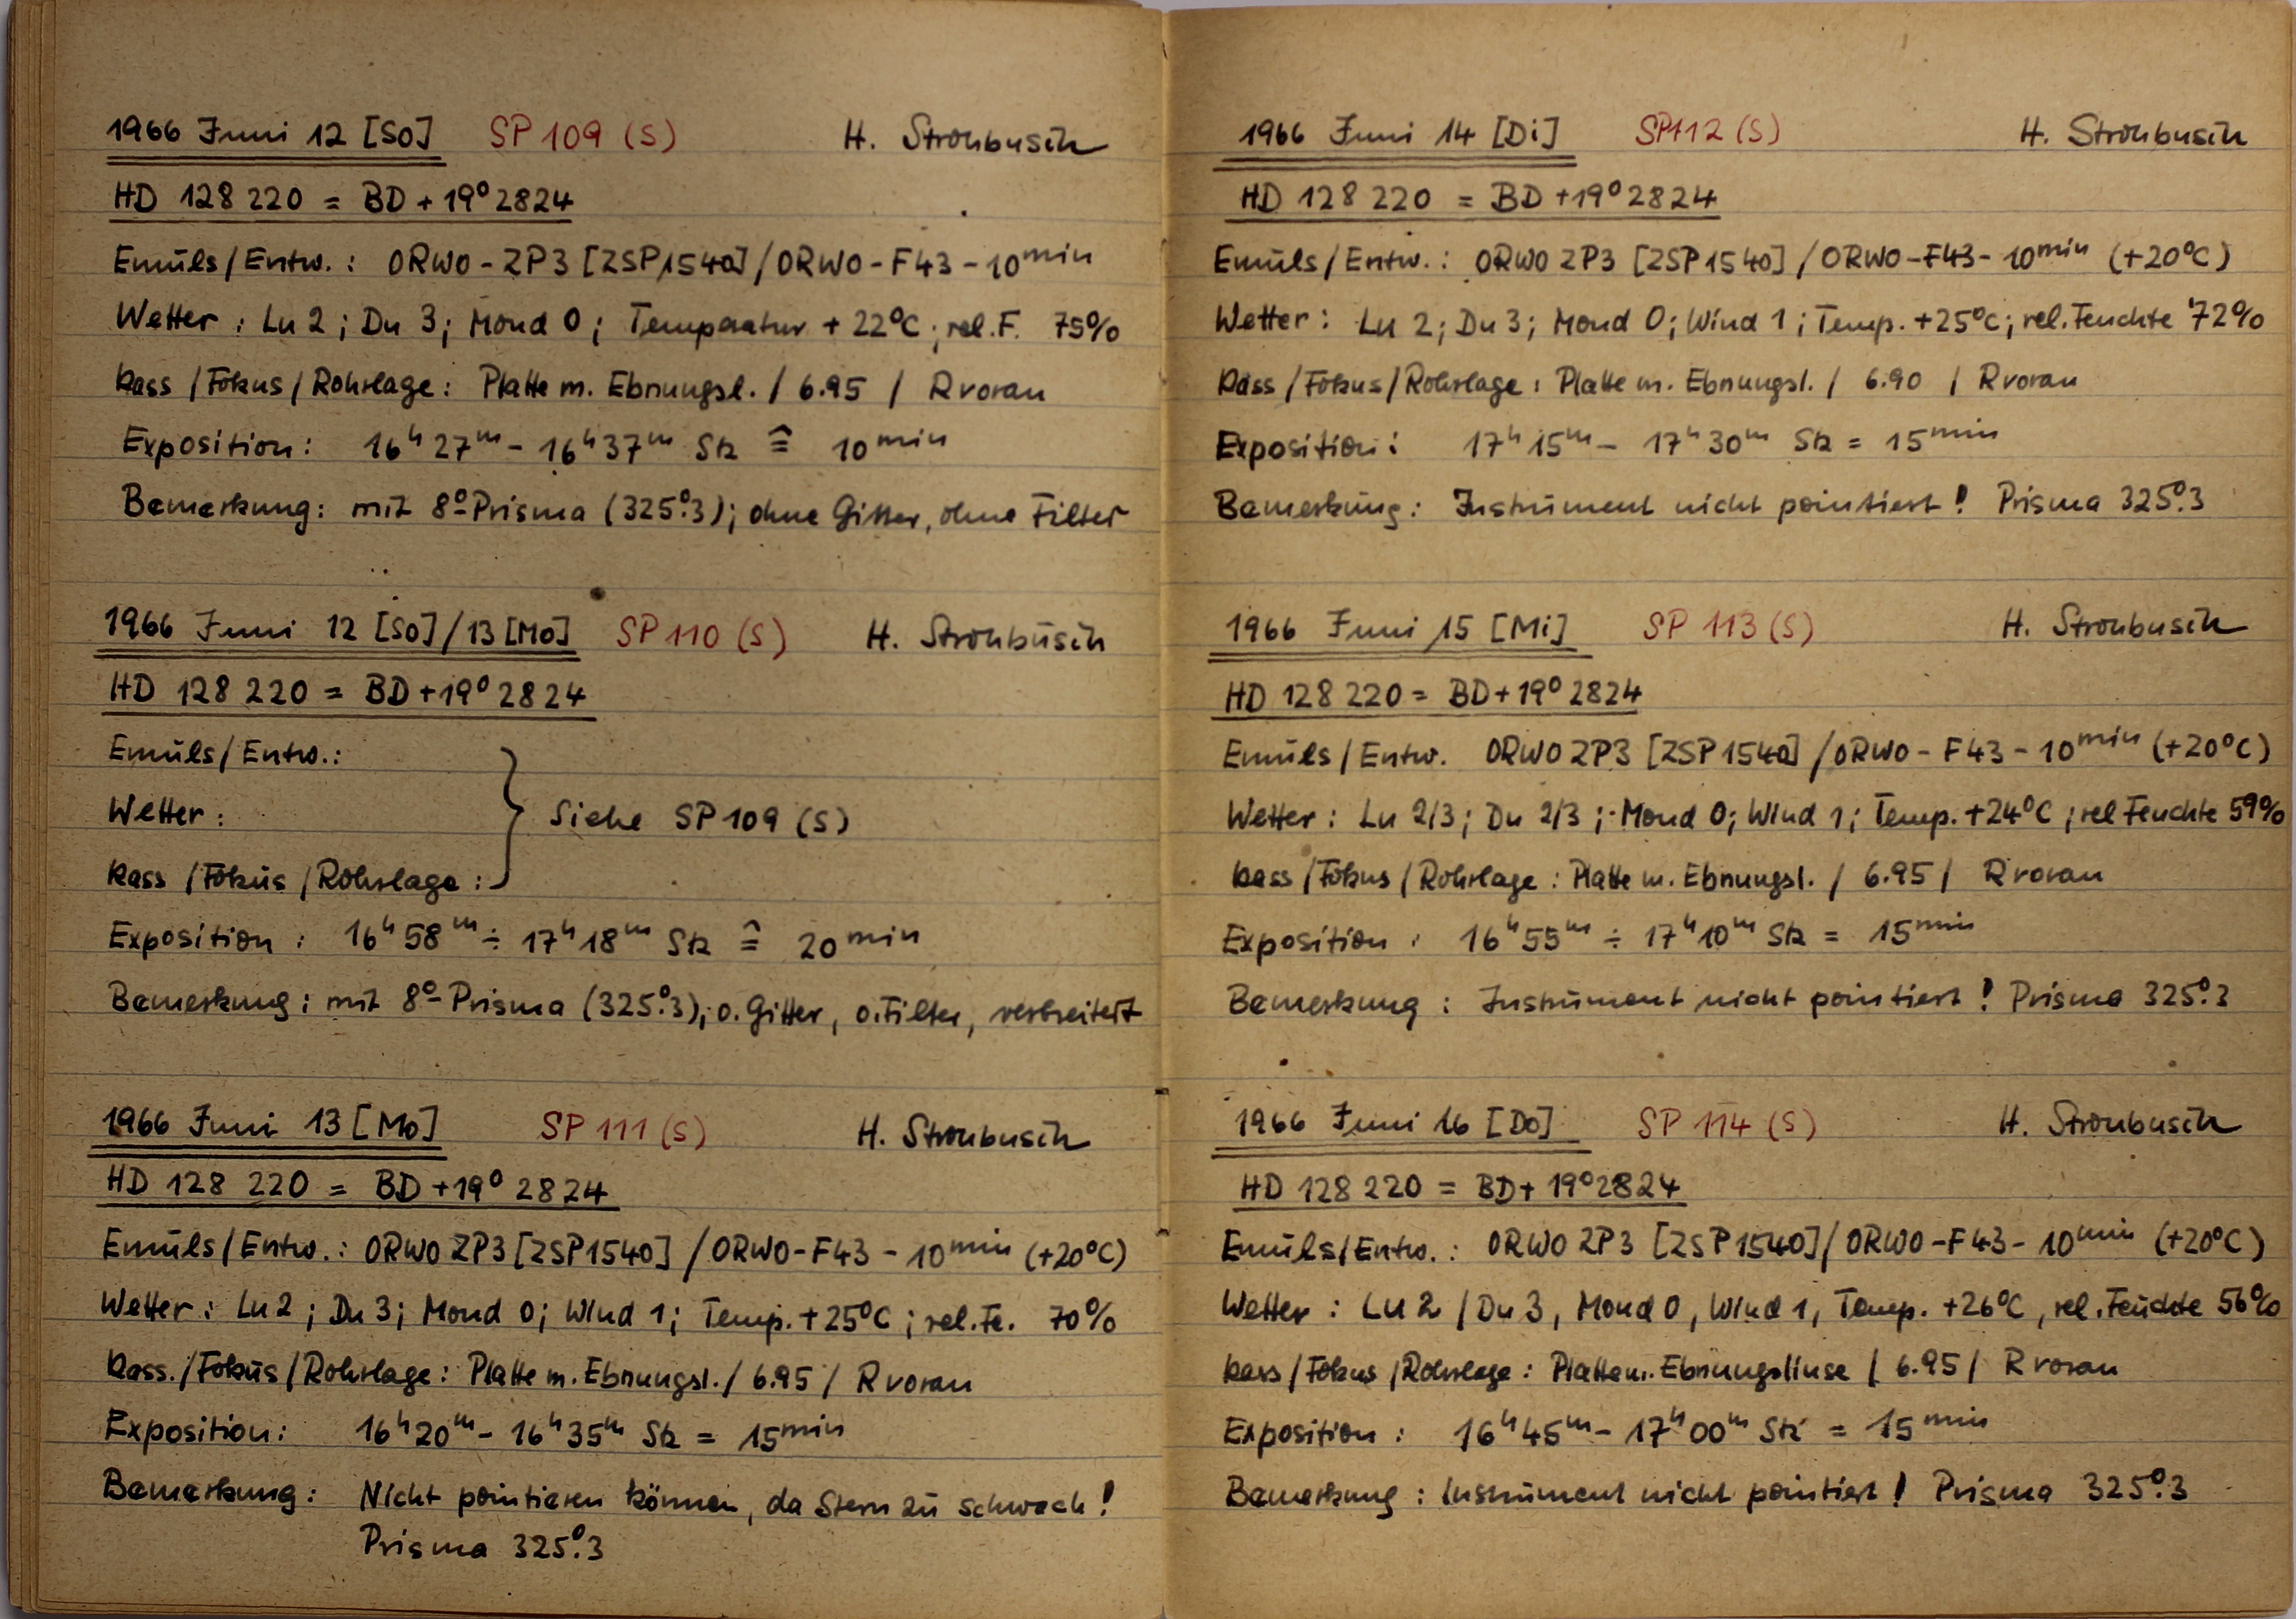 1966 Juni 12 [So] SP 109 (S) H. Strohbusch
HD 128 220 = BD + 19° 2824
Emuls/Entw. : ORWO - ZP3 [ZSP1540] / ORWO - F43 - 10min
Wetter : Lu 2 ; Du 3 ; Mond 0 ; Temperatur + 22°C ; rel. F. 75%
Kass / Fokus / Rohrlage : Platte m. Ebnungsl. / 6.95 / R voran
Exposition : 16h 27m - 16h 37m Stz ≙ 10min
Bemerkung : mit 8°-Prisma (325°.3) ; ohne Gitter, ohne Filter
1966 Juni 12 [So] / 13 [Mo] SP 110 (S) H. Strohbusch
HD 128 220 = BD + 19° 2824
Emuls/Entw. :
Wetter :
Kass / Fokus / Rohrlage :
} Siehe SP 109 (S)
Exposition : 16h 58m ÷ 17h 18m Stz ≙ 20min
Bemerkung : mit 8°-Prisma (325°.3) ; o. Gitter, o. Filter, verbreitert
1966 Juni 13 [Mo] SP 111 (S) H. Strohbusch
HD 128 220 = BD + 19° 2824
Emuls/Entw. : ORWO ZP3 [ZSP1540] / ORWO - F43 - 10min (+20°C)
Wetter : Lu 2 ; Du 3 ; Mond 0 ; Wind 1 ; Temp. + 25°C ; rel. Fe. 70%
Kass. / Fokus / Rohrlage : Platte m. Ebnungsl. / 6.95 / R voran
Exposition : 16h 20m - 16h 35m Stz = 15min
Bemerkung : Nicht pointieren können, da Stern zu schwach !
Prisma 325°.3
1966 Juni 14 [Di] SP 112 (S) H. Strohbusch
HD 128 220 = BD + 19° 2824
Emuls/Entw. : ORWO ZP3 [ZSP1540] / ORWO - F43 - 10min (+20°C)
Wetter : Lu 2 ; Du 3 ; Mond 0 ; Wind 1 ; Temp. +25°C ; rel. Feuchte 72%
Kass / Fokus / Rohrlage : Platte m. Ebnungsl. / 6.90 / R voran
Exposition : 17h 15m - 17h 30m Stz = 15min
Bemerkung : Instrument nicht pointiert ! Prisma 325°.3
1966 Juni 15 [Mi] SP 113 (S) H. Strohbusch
HD 128 220 = BD + 19° 2824
Emuls/Entw. ORWO ZP3 [ZSP1540] / ORWO - F43 - 10min (+20°C)
Wetter : Lu 2/3 ; Du 2/3 ; Mond 0 ; Wind 1 ; Temp. +24°C ; rel Feuchte 59%
Kass / Fokus / Rohrlage : Platte m. Ebnungsl. / 6.95 / R voran
Exposition : 16h 55m ÷ 17h 10m Stz = 15min
Bemerkung : Instrument nicht pointiert ! Prisma 325°.3
1966 Juni 16 [Do] SP 114 (S) H. Strohbusch
HD 128 220 = BD + 19° 2824
Emuls/Entw. : ORWO ZP3 [ZSP1540] / ORWO - F43 - 10min (+20°C)
Wetter : Lu 2 / Du 3, Mond 0, Wind 1, Temp. +26°C, rel. Feuchte 56%
Kass / Fokus / Rohrlage : Platte m. Ebnungslinse / 6.95 / R voran
Exposition : 16h 45m - 17h 00m Stz = 15min
Bemerkung : Instrument nicht pointiert ! Prisma 325°.3